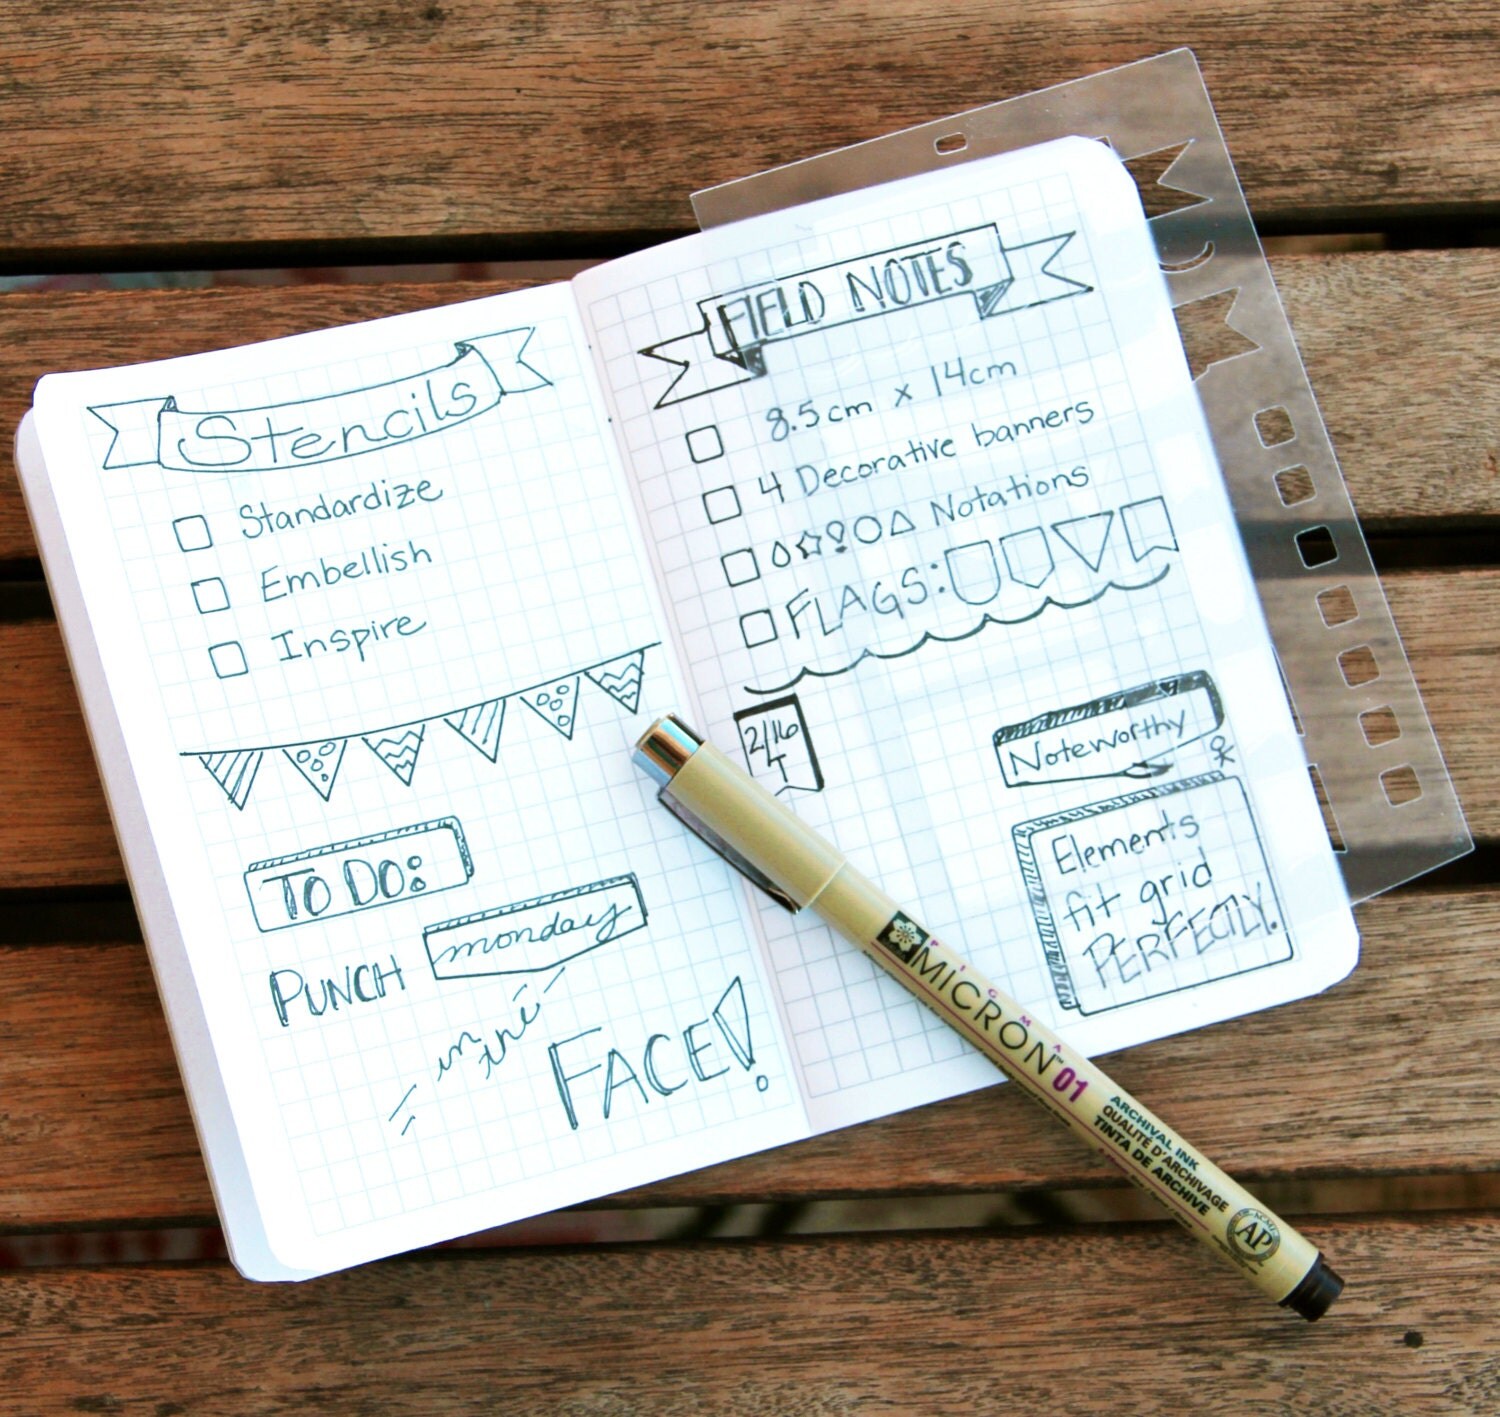 Stencils
Standardize
Embellish
Inspire
TO DO:
PUNCH monday
in the
FACE!
FIELD NOTES
8.5cm x 14cm
4 Decorative banners
Notations
FLAGS:
2/16
T
Noteworthy
Elements
fit grid
PERFECTLY.
PIGMA
MICRON™ 01
ARCHIVAL INK
QUALITÉ D'ARCHIVAGE
TINTA DE ARCHIVE
AP